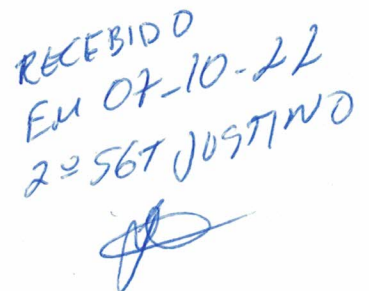 RECEBIDO
EM 07-10-22
2º SGT JUSTINO